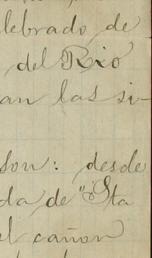 lebrado de
del Rio
an las si-
son: desde
da de "Sta
el cañon